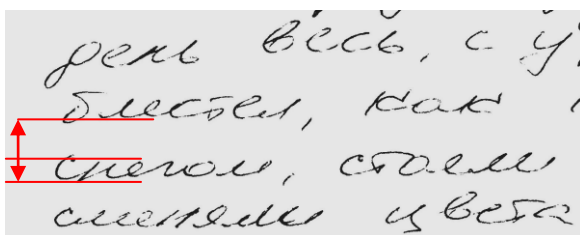 день весь, с у
блестел, как
снегом, стоем
сменяли цвета